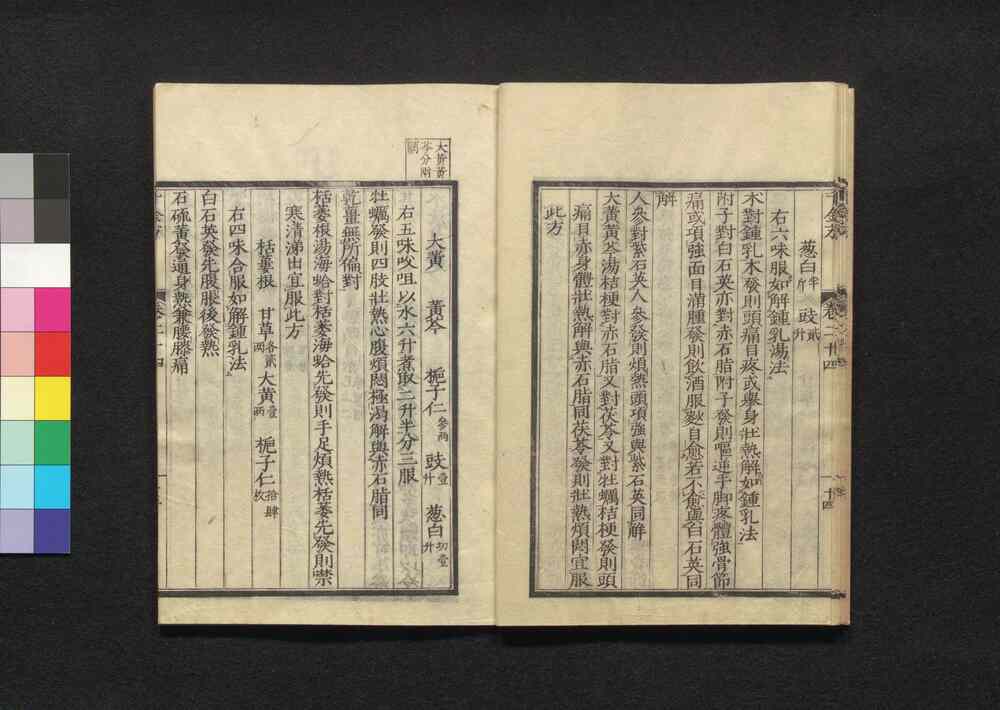 葱白半斤 豉貳升
右六味服如解鍾乳湯法
朮對鍾乳朮發則頭痛目疼或舉身壯熱解如鍾乳法
附子對白石英亦對赤石脂附子發則嘔逆手脚疼體強骨節
痛或項強面目滿腫發則飲酒服麨自愈若不愈與白石英同
解
人參對紫石英人參發則煩熱頭項強與紫石英同解
大黃黃芩湯桔梗對赤石脂又對茯苓又對牡蠣桔梗發則頭
痛目赤身體壯熱解與赤石脂同茯苓發則壯熱煩悶宜服
此方
卷二十四
十四
大黃黃
芩分兩
闕
大黃 黃芩 梔子仁參兩 豉壹升 葱白切壹升
右五味㕮咀以水六升煮取二升半分三服
牡蠣發則四肢壯熱心腹煩悶極渴解與赤石脂同
乾薑無所偏對
栝蔞根湯海蛤對栝蔞海蛤先發則手足煩熱栝蔞先發則噤
寒清涕出宜服此方
栝蔞根 甘草各貳兩 大黃壹兩 梔子仁拾肆枚
右四味合服如解鍾乳法
白石英發先腹脹後發熱
石硫黃發通身熱兼腰膝痛